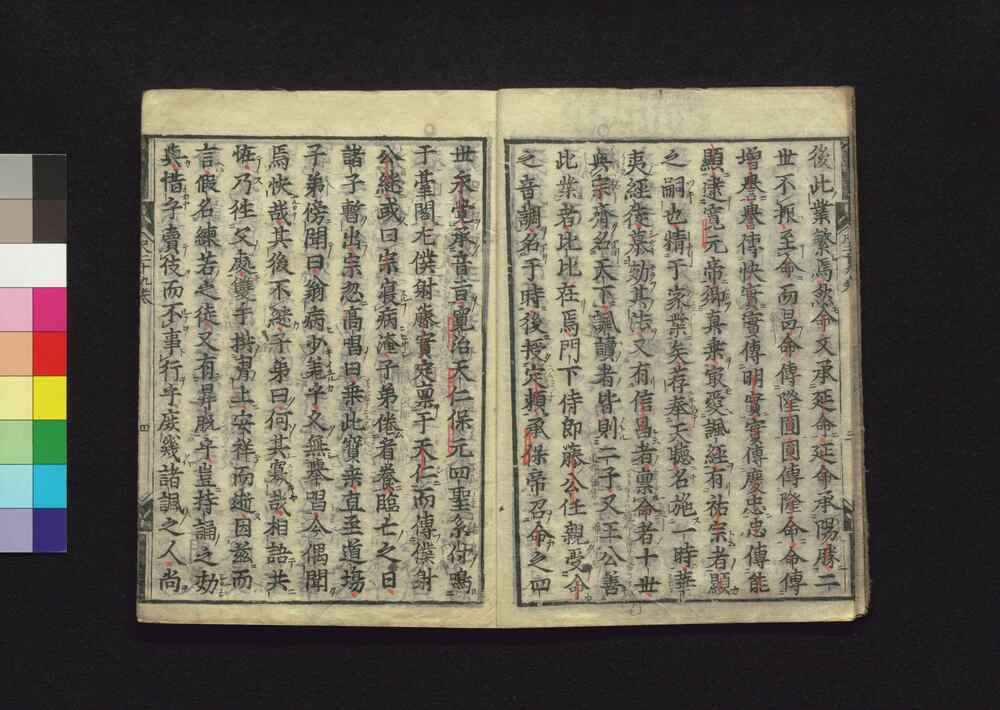 後此業繁焉然命又承延命延命承陽勝二
世不振至命而昌命傳隆圓圓傳隆命命傳
增譽譽傳快實實傳明實實傳慶忠忠傳能
顯達寛元帝御眞乘最愛諷經有祐宗者顯
之嗣也精于家業矣荐奉天聽名施一時華
夷經徒慕効其法又有信昌者稟命者十世
與宗齊名天下諷讀者皆則二子又王公善
此業者比比在焉門下侍郎藤公任親受命
之音調名于時後授定頼承保帝召命之四
世永覺承音旨寛治天仁保元四聖系付鳴
于臺閣左僕射藤實定稟于天仁而傳僕射
公継或曰宗寝病淹子弟倦看養臨亡之日
諸子暫出宗忽高唱曰乘此寶乘直至道場
子弟傍聞曰翁病少差乎久無擧唱今偶聞
焉快哉其後不継子弟曰何其寡哉相語共
恠乃徃又麽雙手拱胷上安祥而逝因茲而
言假名練若之徒又有昇脱乎豈持誦之効
與惜乎賣伎而不事行乎庶幾諸諷之人尚
四